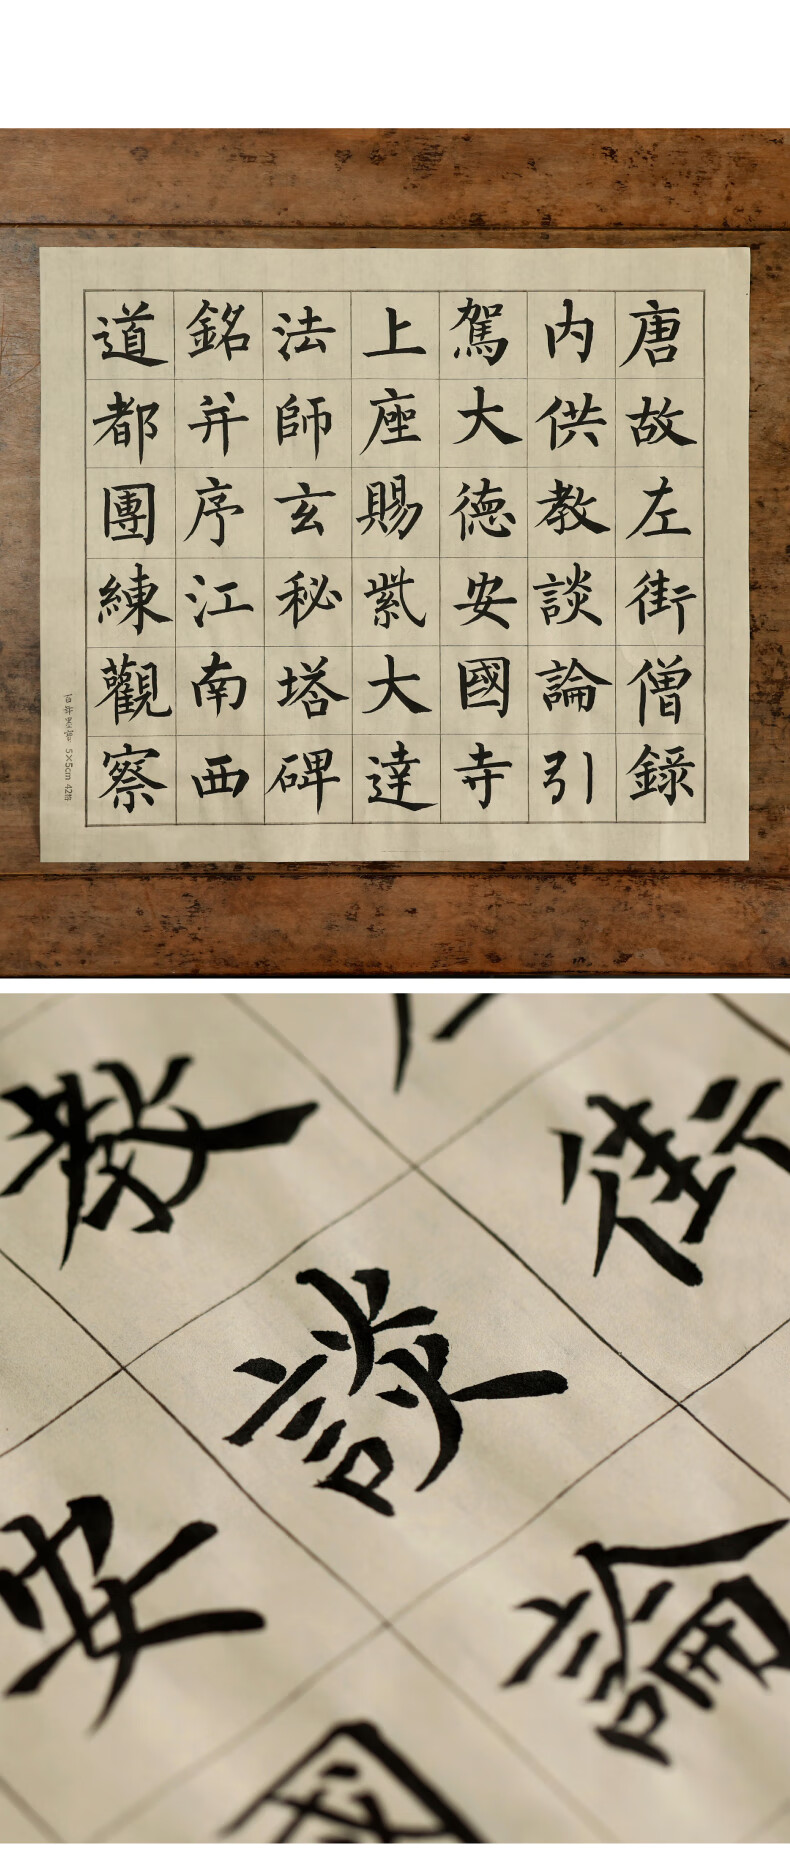 唐故左街僧錄
内供教談論引
駕大德安國寺
上座賜紫大達
法師玄秘塔碑
銘并序江南西
道都團練觀察
5×5cm 42格
教
街
談
安
論
國